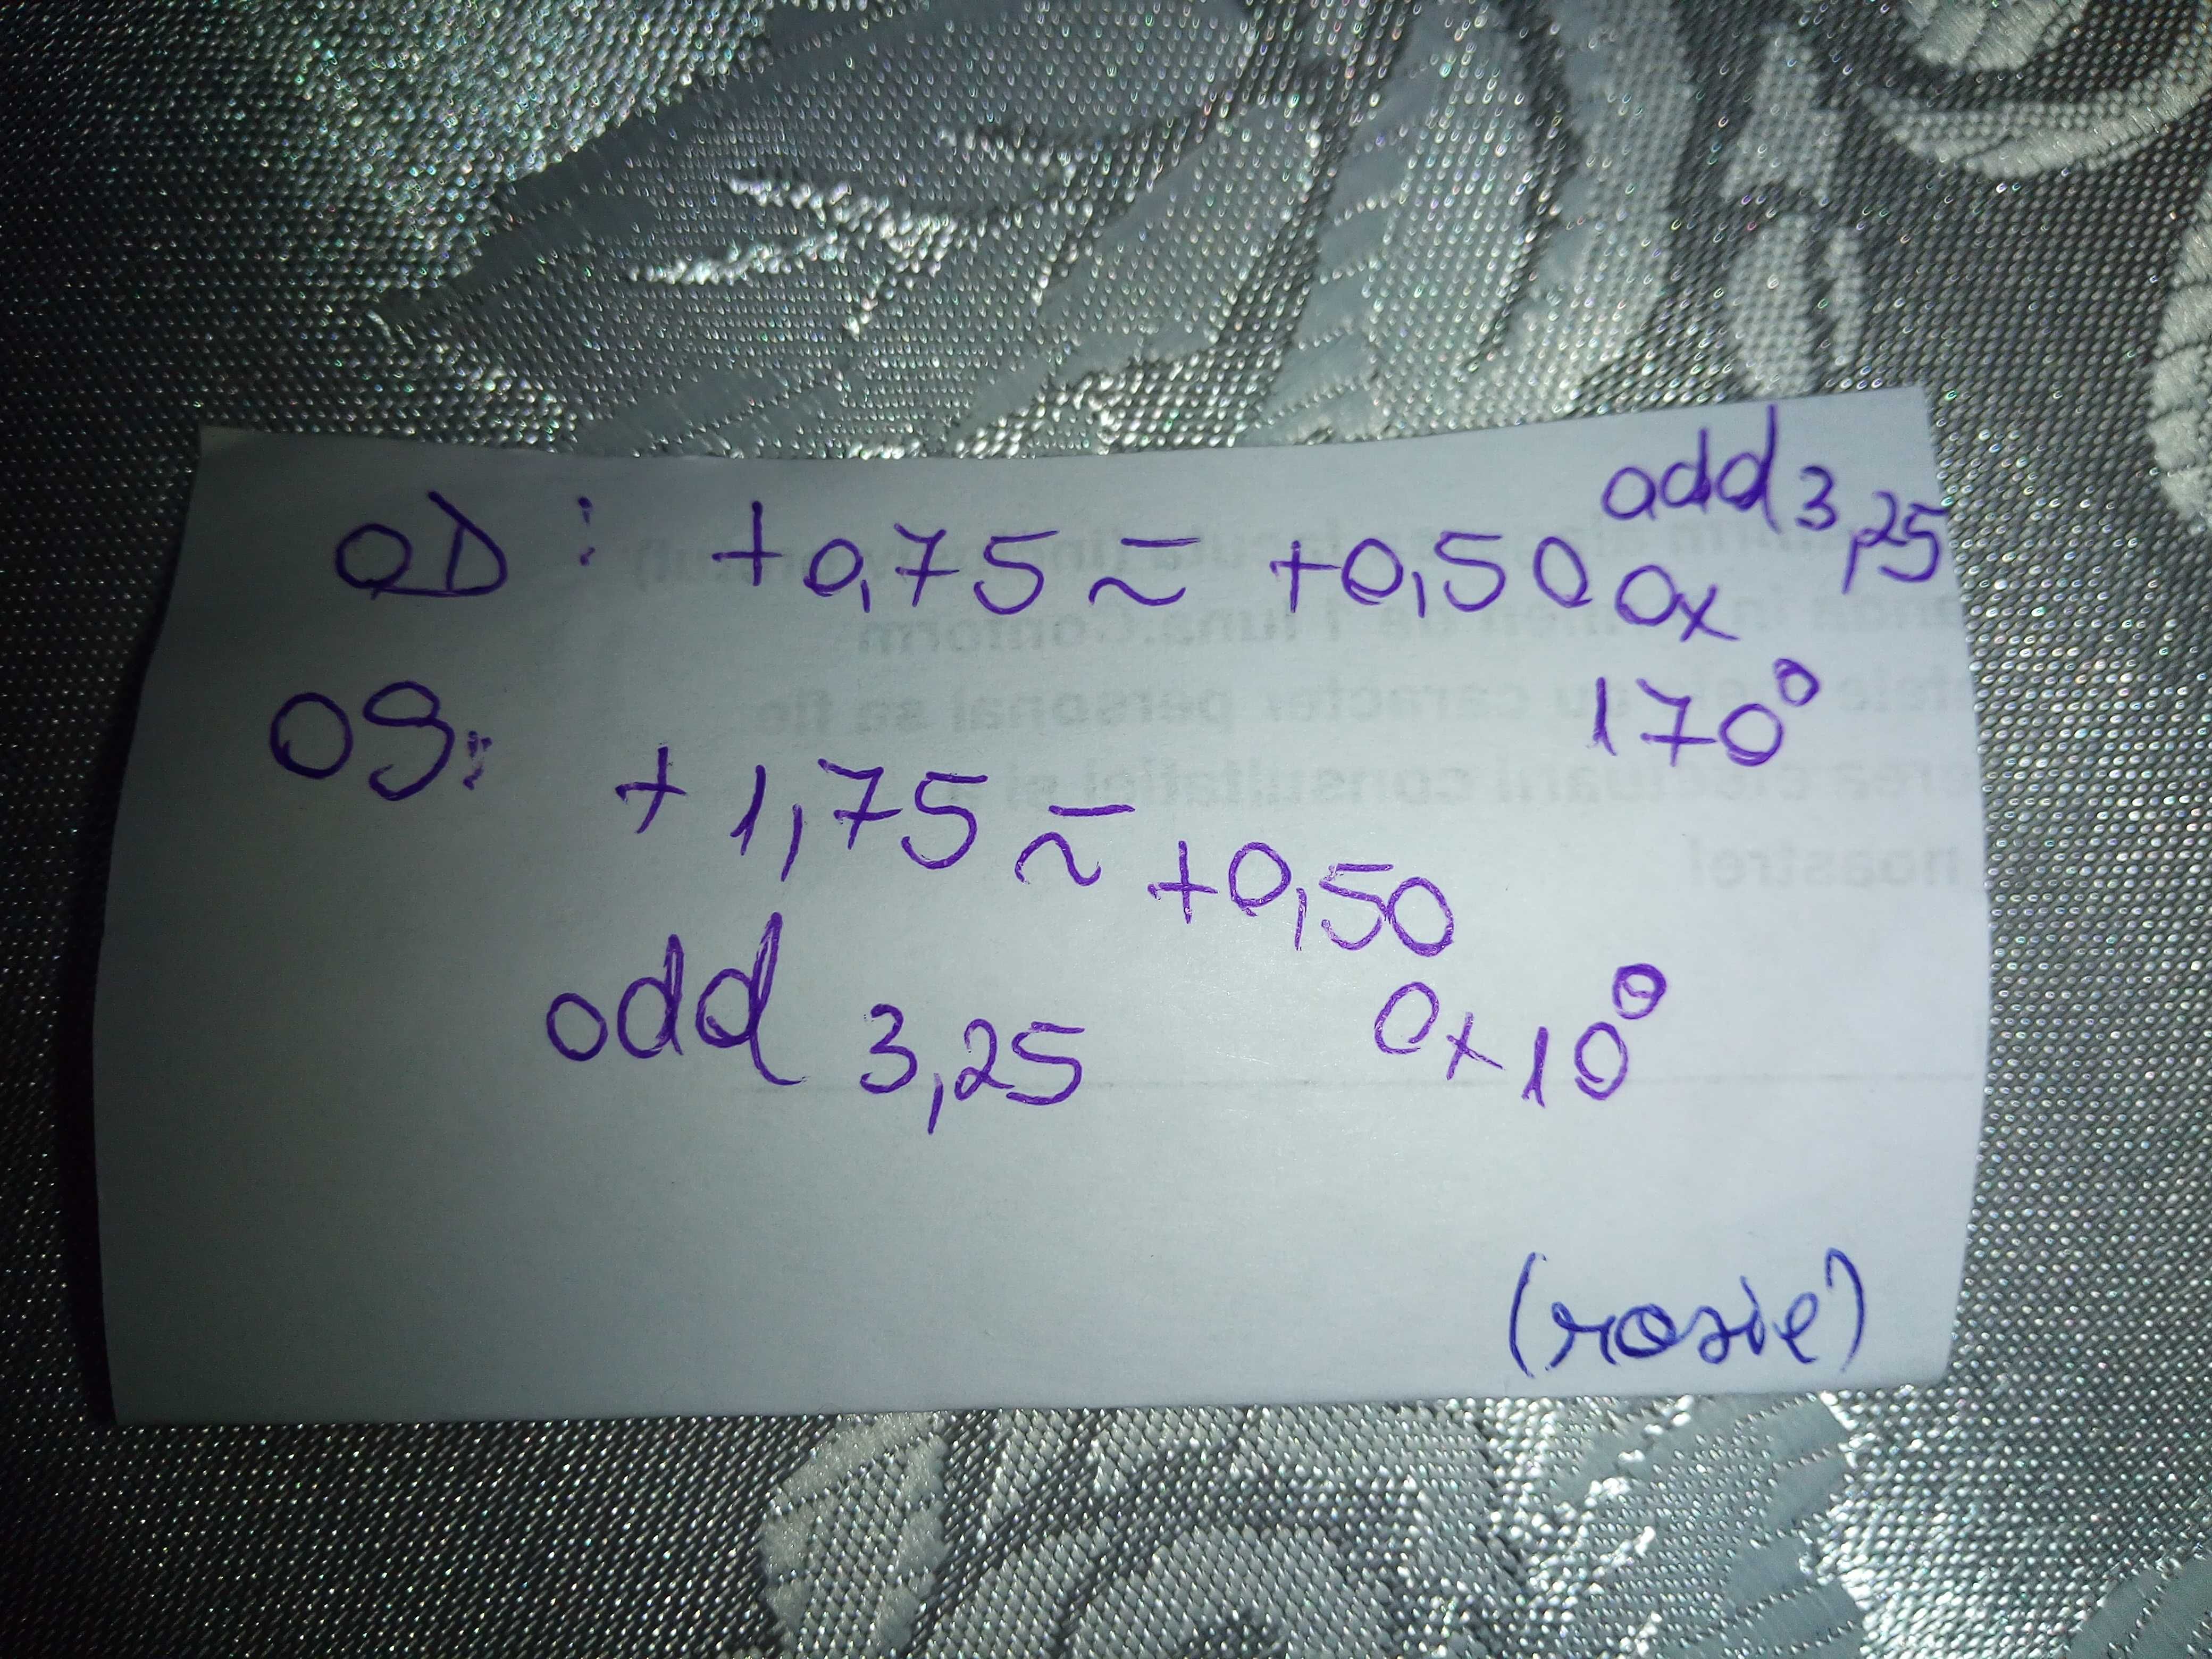 OD: +0,75 ≂ +0,50 add 3,25
ox
170°
OS: +1,75 ≂ +0,50
add 3,25 ox 10°
(rosie)